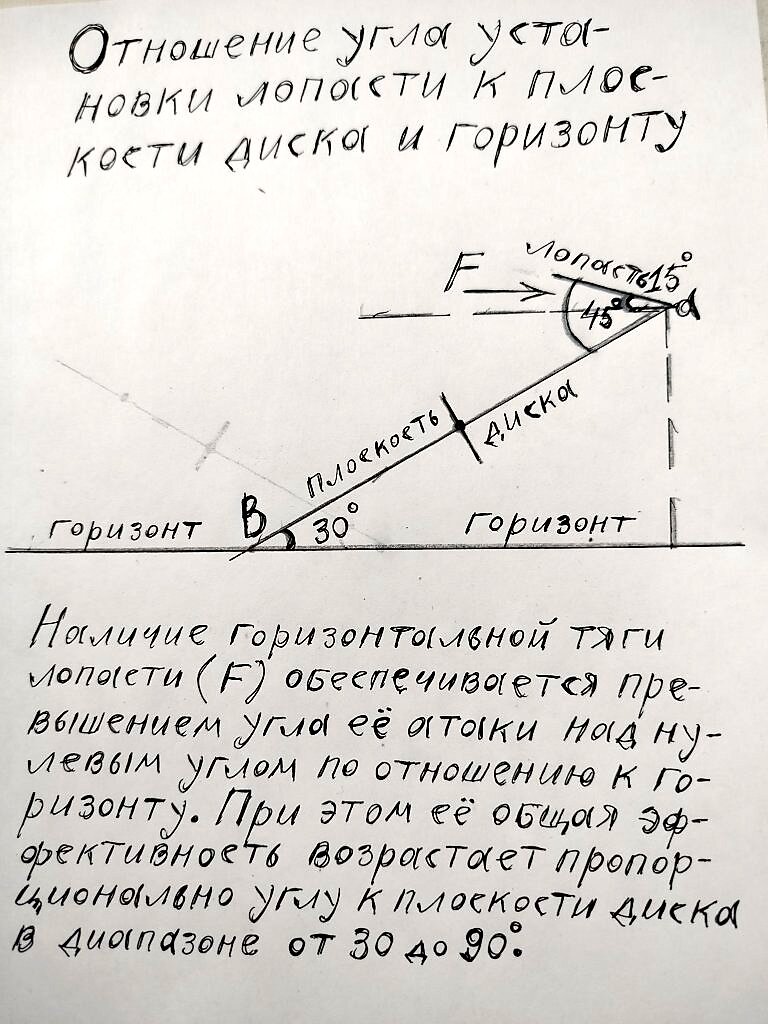 Отношение угла уста-
новки лопасти к плос-
кости диска и горизонту
F
лопасть 15°
45°
α
плоскость диска
B
30°
горизонт
горизонт
Наличие горизонтальной тяги
лопасти (F) обеспечивается пре-
вышением угла её атаки над ну-
левым углом по отношению к го-
ризонту. При этом её общая эф-
фективность возрастает пропор-
ционально углу к плоскости диска
в диапазоне от 30 до 90°.